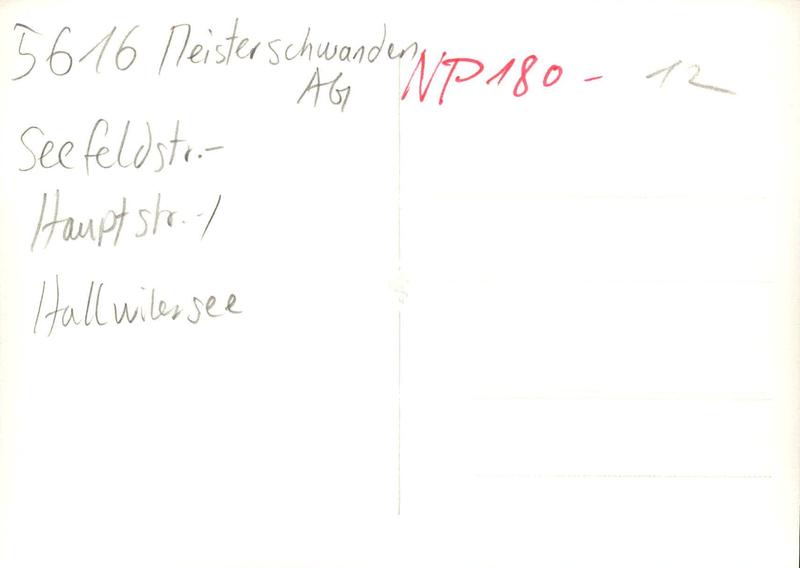 5616 Meisterschwanden
AG
NP 180 - 12
Seefeldstr.-
Hauptstr.-/
Hallwilersee